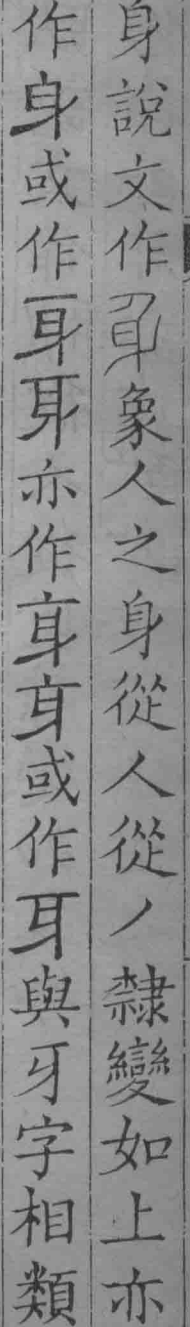 身說文作象人之身從人從丿隸變如上亦
作身或作亦作或作耳與牙字相類